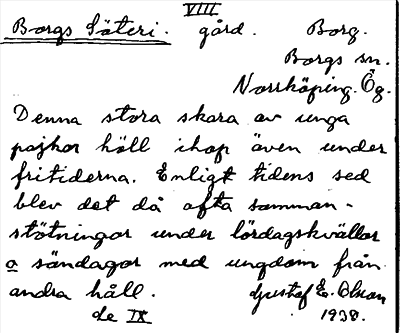 VIII
Borgs Säteri. gård. Borg.
Borgs sn.
Norrköping. Ög.
Denna stora skara av unga
pojkar höll ihop även under
fritiderna. Enligt tidens sed
blev det då ofta samman-
stötningar under lördagskvällar
o söndagar med ungdom från
andra håll. Gustaf E. Olson
de IX 1938.